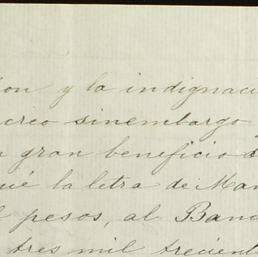 ion y la indignaci
creo sinembargo
gran beneficio
ué la letra de Man
pesos, al Banc
tres mil trecient